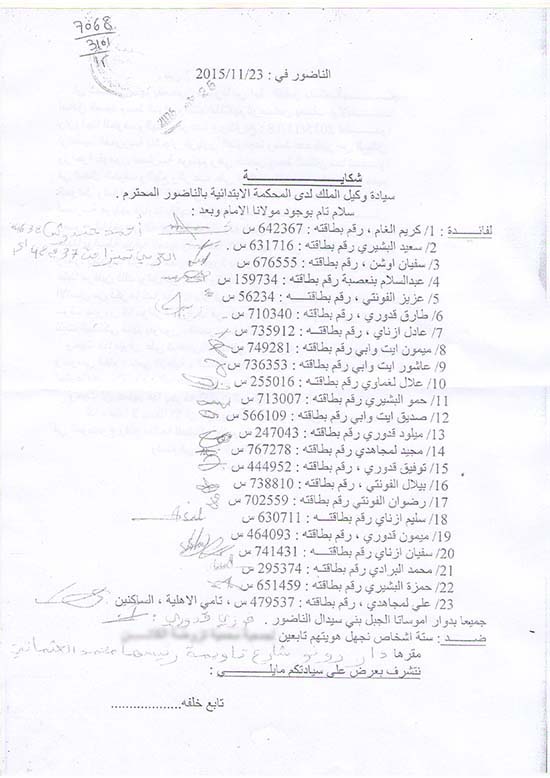 7068
3101
الناضور في : 2015/11/23
شكايـــــــــة
سيادة وكيل الملك لدى المحكمة الابتدائية بالناضور المحترم .
سلام تام بوجود مولانا الامام وبعد :
لفائـــدة : 1/ كريم الغام ، رقم بطاقته : 642367 س
2/ سعيد البشيري رقم بطاقته : 631716 س
3/ سفيان اوشن ، رقم بطاقته : 676555 س
4/ عبدالسلام بنعصبة رقم بطاقته : 159734 س
5/ عزيز الفونتي ، رقم بطاقتـــه : 56234 س
6/ طارق قدوري ، رقم بطاقته : 710340 س
7/ عادل ازناي ، رقم بطاقتــه : 735912 س
8/ ميمون ايت وابي رقم بطاقته : 749281 س
9/ عاشور ايت وابي رقم بطاقته : 736353 س
10/ علال لغماوي رقم بطاقته : 255016 س
11/ حمو البشيري رقم بطاقته : 713007 س
12/ صديق ايت وابي رقم بطاقته : 566109 س
13/ ميلود قدوري رقم بطاقته : 247043 س
14/ مجيد لمجاهدي رقم بطاقته : 767278 س
15/ توفيق قدوري ، رقم بطاقته : 444952 س
16/ بيلال الفونتي ، رقم بطاقته : 738810 س
17/ رضوان الفونتي رقم بطاقته : 702559 س
18/ سليم ازناي رقم بطاقتـــه : 630711 س
19/ ميمون قدوري ، رقم بطاقته : 464093 س
20/ سفيان ازناي رقم بطاقتـــه : 741431 س
21/ محمد البرادي رقم بطاقته : 295374 س
22/ حمزة البشيري رقم بطاقته : 651459 س
23/ علي لمجاهدي ، رقم بطاقته : 479537 س ، تامي الاهلية ، الساكنين
جميعا بدوار اموساتا الجبل بني سيدال الناضور . عزيز قدوري :
ضـــد : ستة اشخاص نجهل هويتهم تابعين
مقرها دار شارع رئيسها محمد
نتشرف بعرض على سيادتكم مايلـــــي :
تابع خلفه.....................